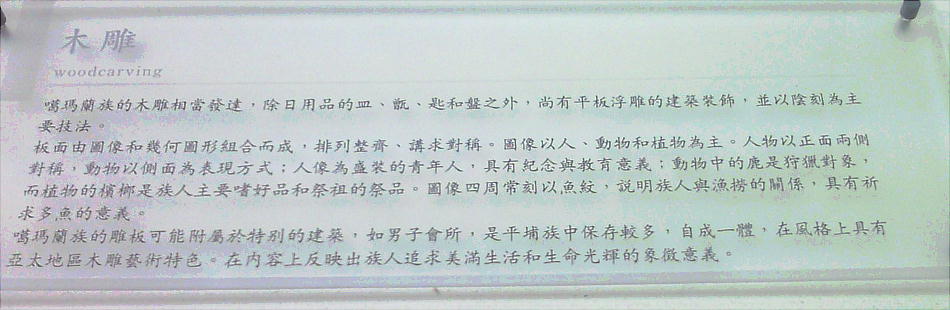 木雕
woodcarving
噶瑪蘭族的木雕相當發達，除日用品的皿、甑、匙和盤之外，尚有平板浮雕的建築裝飾，並以陰刻為主
要技法。
板面由圖像和幾何圖形組合而成，排列整齊、講求對稱。圖像以人、動物和植物為主。人物以正面兩側
對稱，動物以側面為表現方式；人像為盛裝的青年人，具有紀念與教育意義；動物中的鹿是狩獵對象，
而植物的檳榔是族人主要嗜好品和祭祖的祭品。圖像四周常刻以魚紋，說明族人與漁撈的關係，具有祈
求多魚的意義。
噶瑪蘭族的雕板可能附屬於特別的建築，如男子會所，是平埔族中保存較多，自成一體，在風格上具有
亞太地區木雕藝術特色。在內容上反映出族人追求美滿生活和生命光輝的象徵意義。